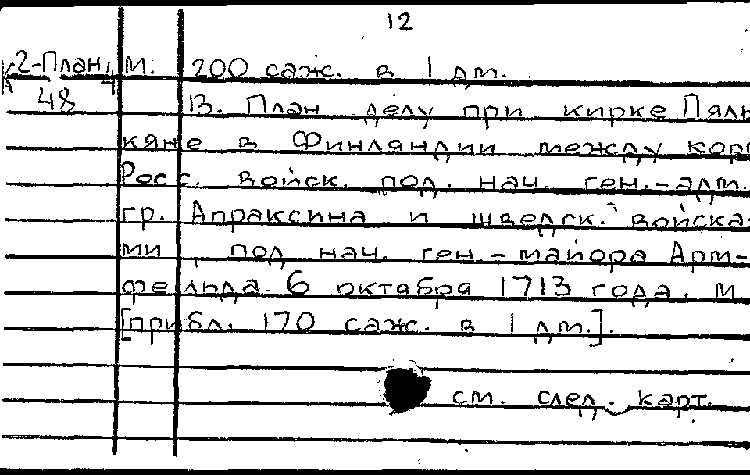 12
К 2-План 4 М. 200 саж. в 1 дм.
48 В. План делу при кирке Пяль
кяне в Финляндии между кор
Росс. войск. под. нач. ген.-адм.
гр. Апраксина и шведск. войска-
ми, под нач. ген.-майора Арм-
фельда 6 октября 1713 года. М.
[прибл. 170 саж. в 1 дм.].
см. след. карт.